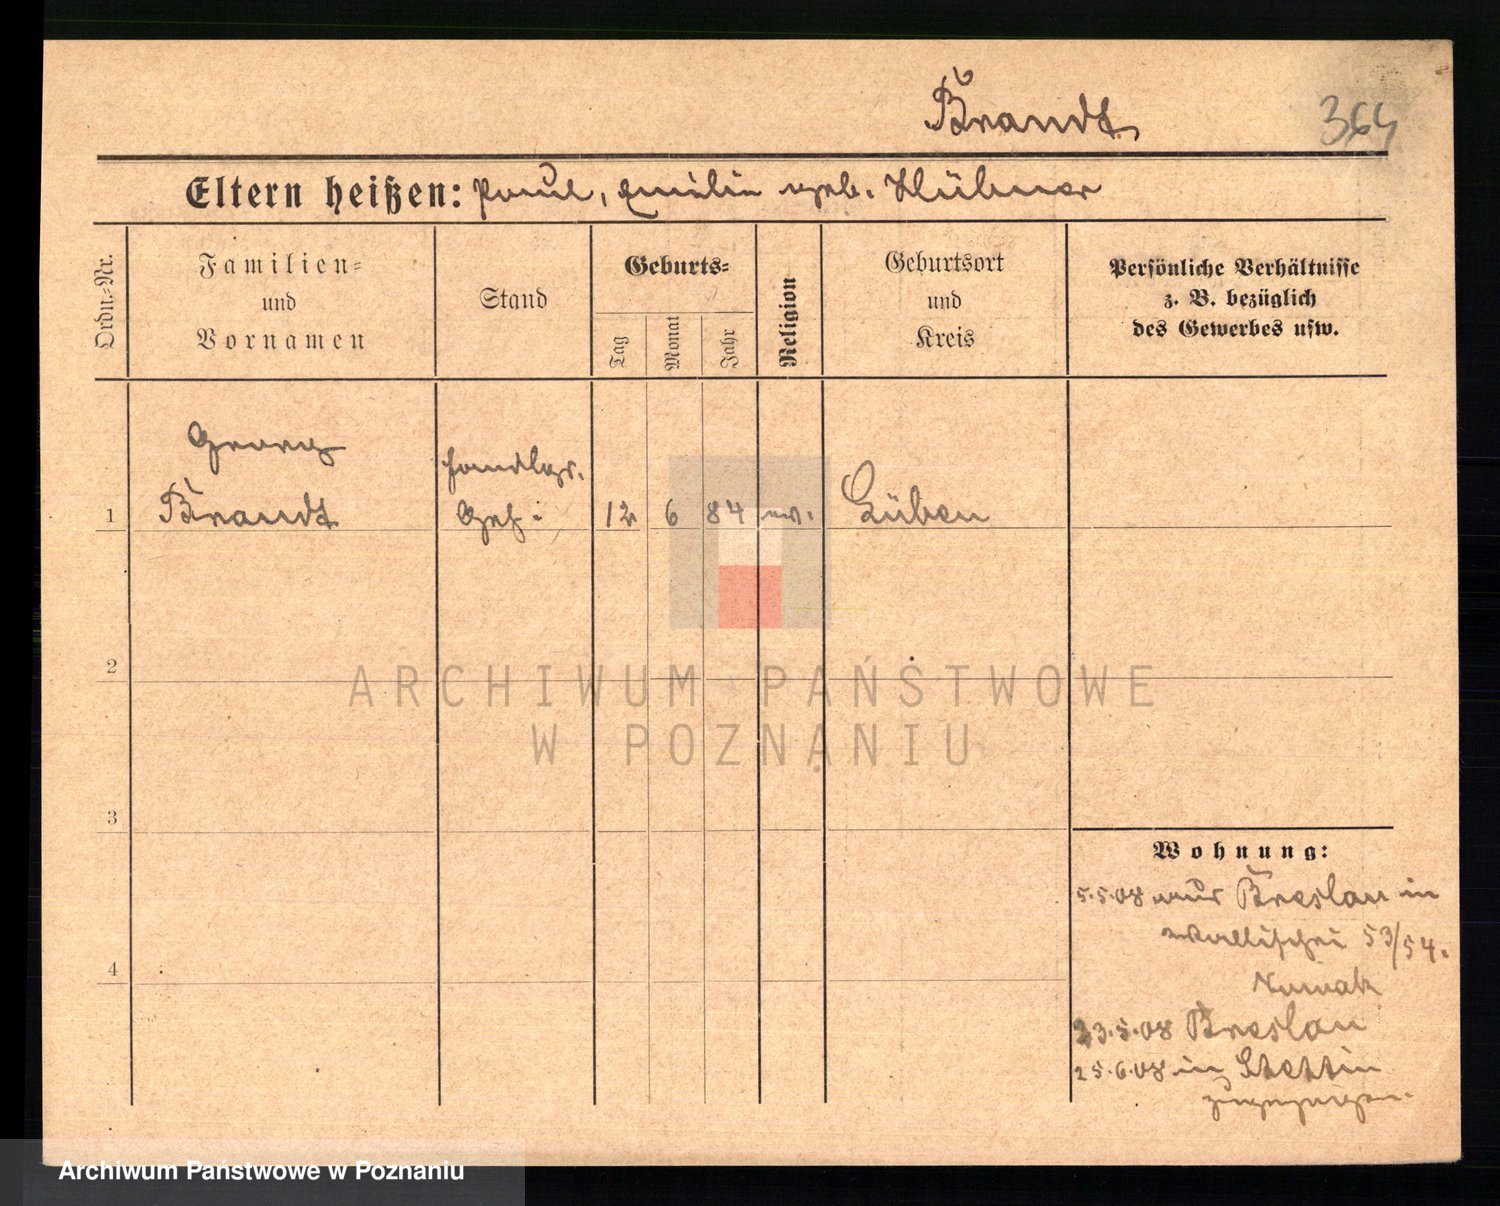 Brandt
364
Eltern heißen: Paul, Emilie geb. Hübner
Ordn.-Nr.
Familien-
und
Vornamen
Stand
Geburts-
Tag
Monat
Jahr
Religion
Geburtsort
und
Kreis
Persönliche Verhältnisse
z. B. bezüglich
des Gewerbes usw.
Georg
Handlgs.
1 Brandt Geh. 12 6 84 ev. Lüben
2
ARCHIWUM PAŃSTWOWE
W POZNANIU
3
Wohnung:
5.5.08 aus Breslau in
Wallischei 53/54.
Nowak
4
23.5.08 Breslau
25.6.08 in Stettin
zugezogen.
Archiwum Państwowe w Poznaniu